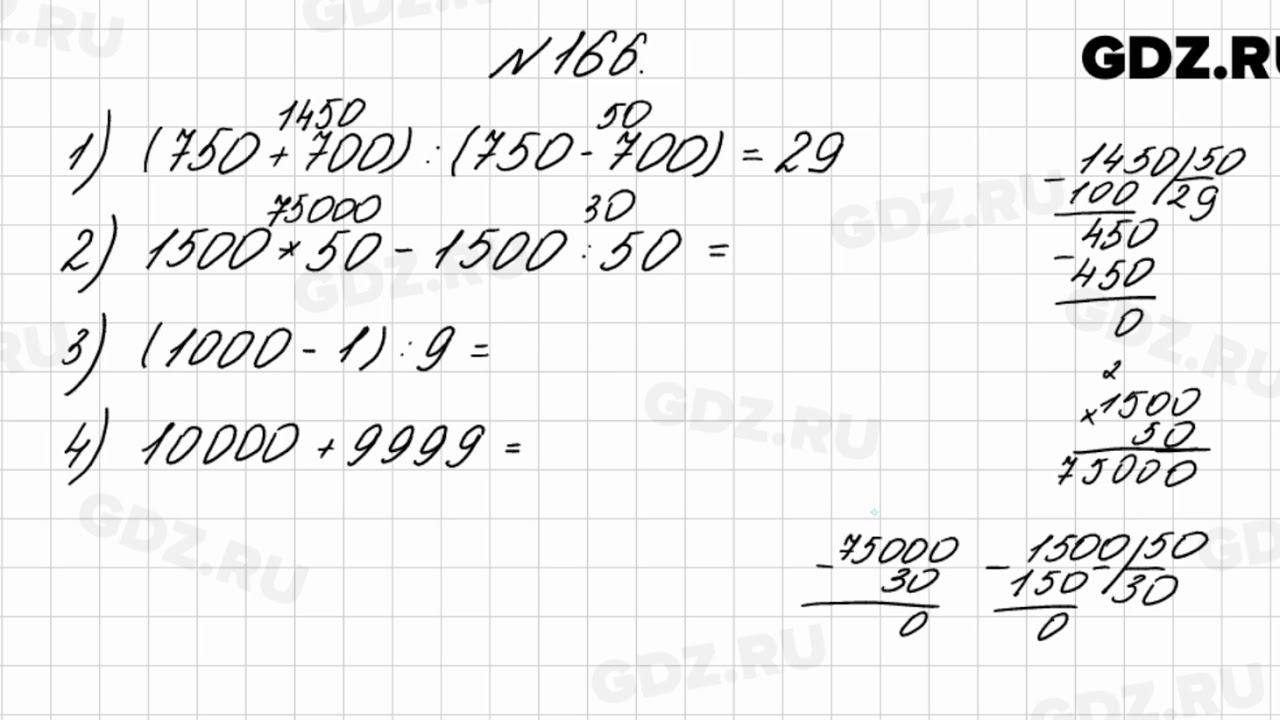 №166.
GDZ.RU
1450 50
1) (750 + 700) : (750 - 700) = 29
75000 30
2) 1500 * 50 - 1500 : 50 =
3) (1000 - 1) : 9 =
4) 10000 + 9999 =
- 1450 | 50
100 | 29
450
- 450
0
2
× 1500
50
75000
- 75000
30
0
- 1500 | 50
150 - | 30
0
GDZ.RU
GDZ.RU
GDZ.RU
GDZ.RU
GDZ.RU
GDZ.RU
GDZ.RU
GDZ.RU
GDZ.RU
GDZ.RU
GDZ.RU